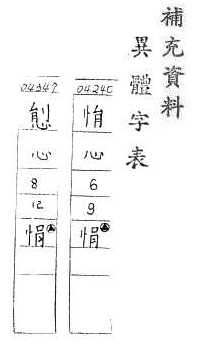 補充資料
異體字表
心
6
9
悁
04347
心
8
12
悁